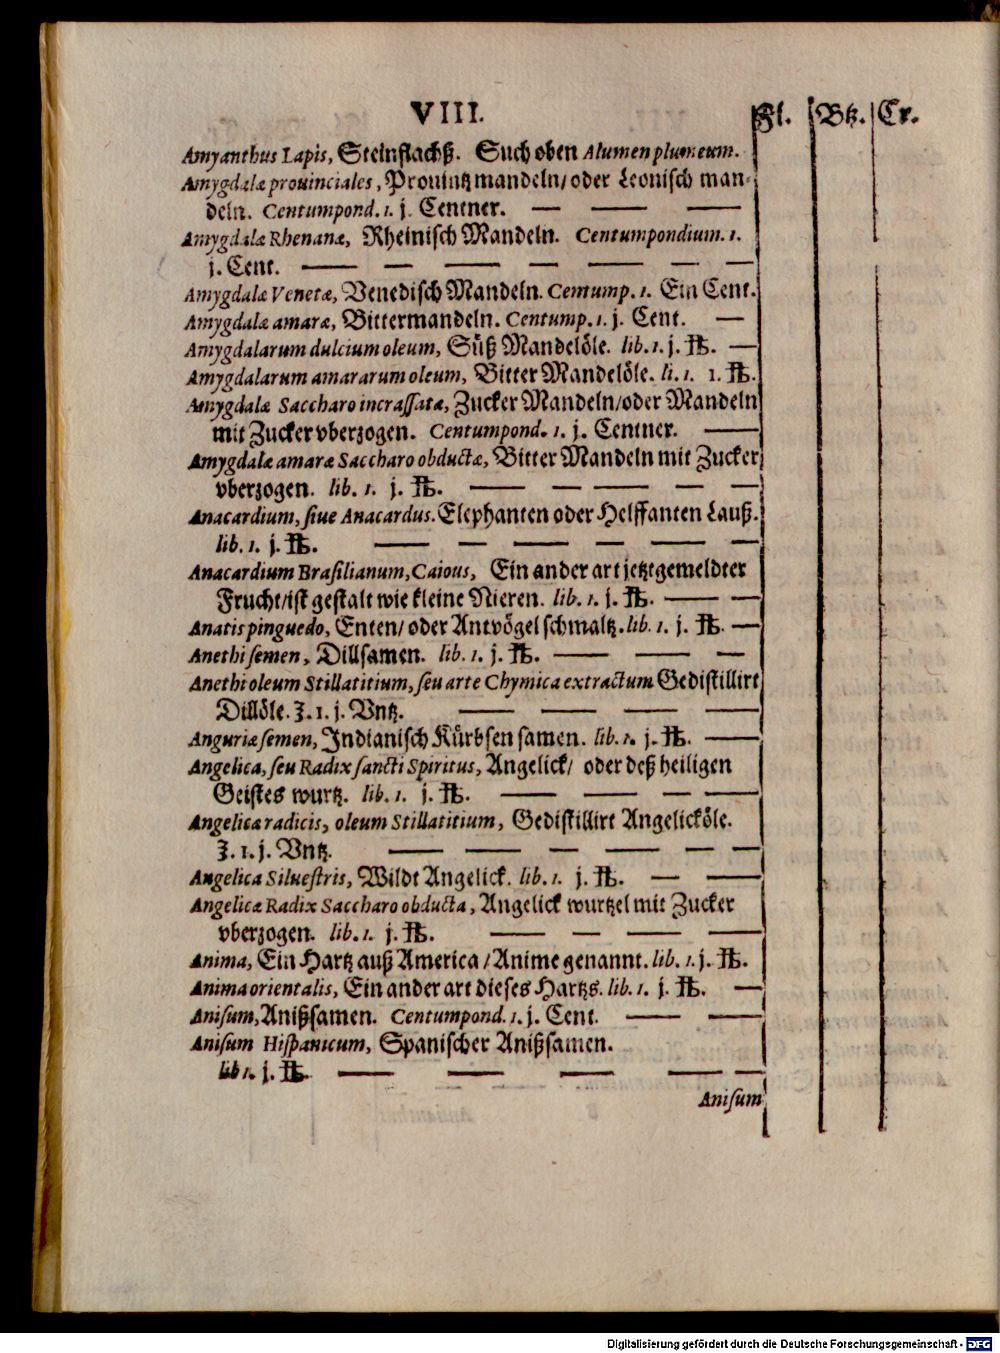 VIII. Fl. Btz. Cr.
Amyanthus Lapis, Steinflachß. Such oben Alumen plumeum.
Amygdalæ prouinciales, Prouintz mandeln/oder Leonisch man-
deln. Centumpond. 1. j. Centner. — — —
Amygdalæ Rhenanæ, Rheinisch Mandeln. Centumpondium. 1.
j. Cent. — — — — — —
Amygdalæ Venetæ, Venedisch Mandeln. Centump. 1. Ein Cent.
Amygdalæ amaræ, Bittermandeln. Centump. 1. j. Cent. —
Amygdalarum dulcium oleum, Süß Mandelöle. lib. 1. j. ℔. —
Amygdalarum amararum oleum, Bitter Mandelöle. li. 1. 1. ℔.
Amygdalæ Saccharo incrassatæ, Zucker Mandeln/oder Mandeln
mit Zucker vberzogen. Centumpond. 1. j. Centner. —
Amygdalæ amaræ Saccharo obductæ, Bitter Mandeln mit Zucker
vberzogen. lib. 1. j. ℔. — — — — —
Anacardium, siue Anacardus. Elephanten oder Helffanten Lauß.
lib. 1. j. ℔. — — — — — —
Anacardium Brasilianum, Caious, Ein ander art jetztgemeldter
Frucht/ist gestalt wie kleine Nieren. lib. 1. j. ℔. — —
Anatis pinguedo, Enten/ oder Antvögel schmaltz. lib. 1. j. ℔. —
Anethi semen, Dillsamen. lib. 1. j. ℔. — — —
Anethi oleum Stillatitium, seu arte Chymica extractum Gedistillirt
Dillöle. ℥. 1. j. Vntz. — — — —
Anguriæ semen, Jndianisch Kürbsen samen. lib. 1. j. ℔. —
Angelica, seu Radix sancti Spiritus, Angelick/ oder deß heiligen
Geistes wurtz. lib. 1. j. ℔. — — — —
Angelicæ radicis, oleum Stillatitium, Gedistillirt Angelicköle.
℥. 1. j. Vntz. — — — — — —
Angelica Siluestris, Wildt Angelick. lib. 1. j. ℔. — —
Angelicæ Radix Saccharo obducta, Angelick wurtzel mit Zucker
vberzogen. lib. 1. j. ℔. — — — —
Anima, Ein Hartz auß America/Anime genannt. lib. 1. j. ℔.
Anima orientalis, Ein ander art dieses Hartzs. lib. 1. j. ℔. —
Anisum, Anißsamen. Centumpond. 1. j. Cent. — —
Anisum Hispanicum, Spanischer Anißsamen.
lib 1. j. ℔. — — — — —
Anisum
Digitalisierung gefördert durch die Deutsche Forschungsgemeinschaft - DFG